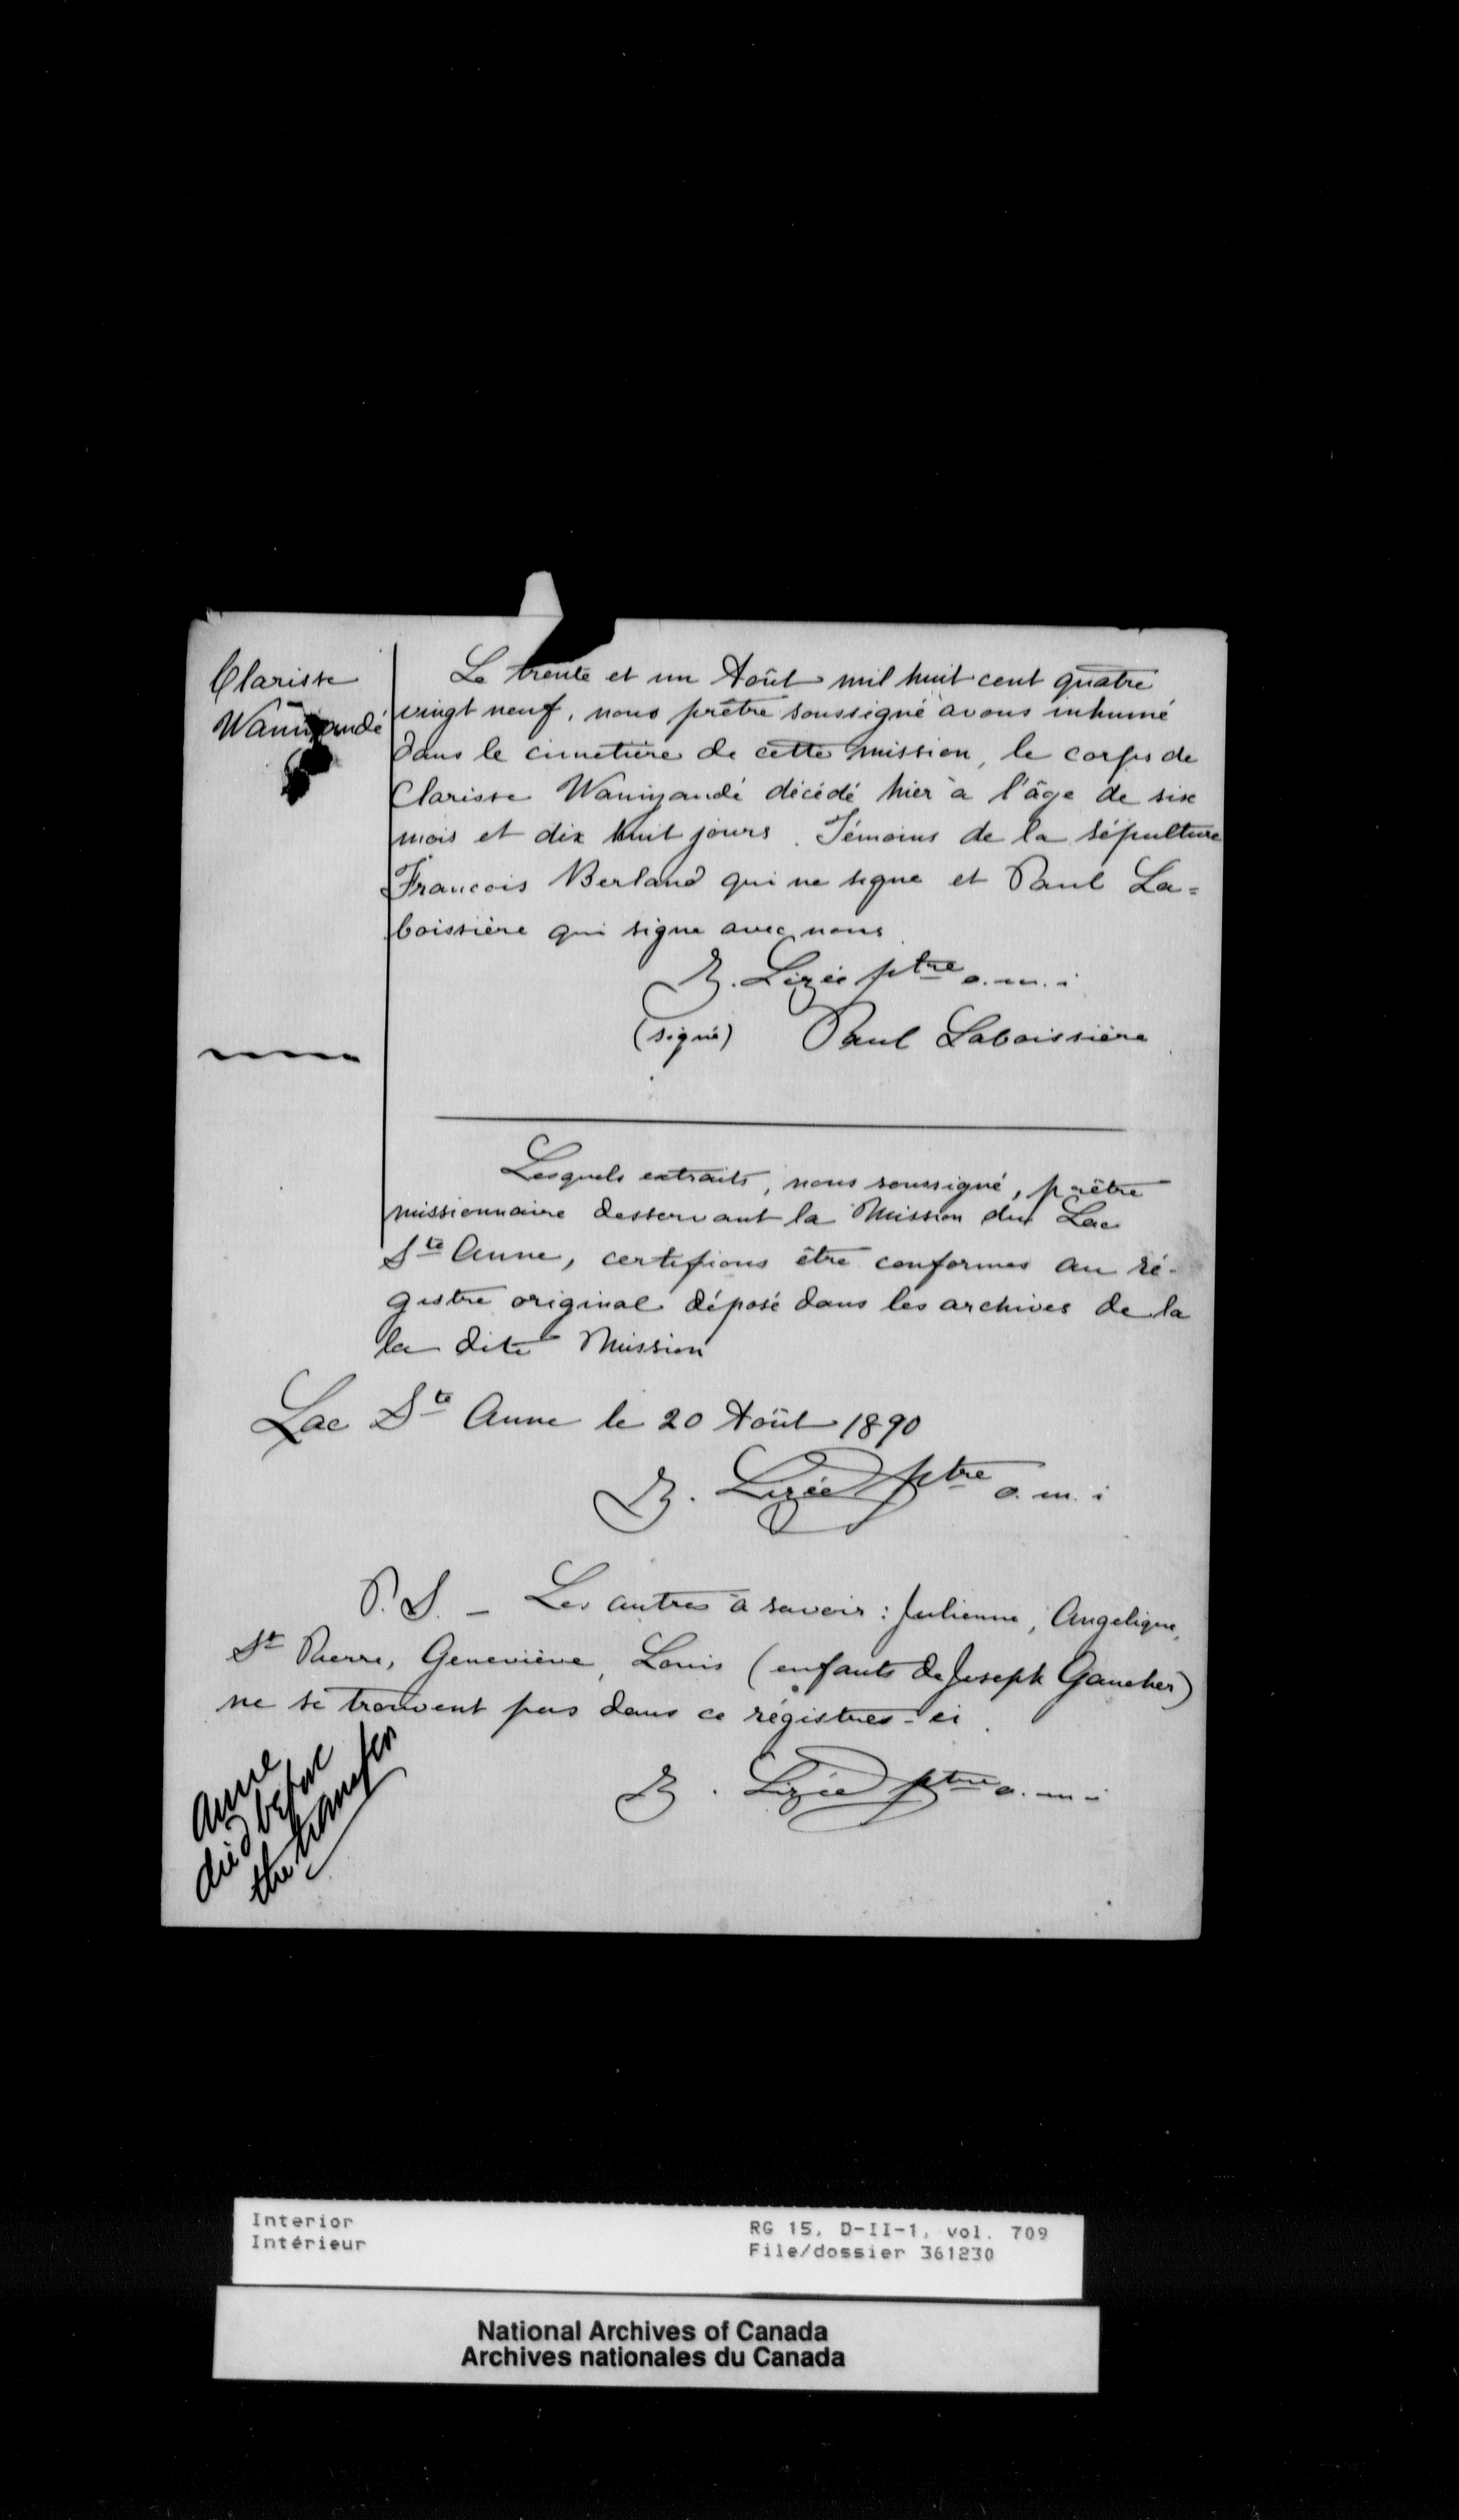 Clarisse
Waniyandé
Le trente et un Août mil huit cent quatre
vingt neuf, nous prêtre soussigné avons inhumé
dans le cimetière de cette mission, le corps de
Clarisse Waniyandé décédé hier à l'âge de six
mois et dix huit jours. Témoins de la sépulture
Francois Berland qui ne signe et Paul La=
boissière qui signe avec nous
Z. Lizée ptre o.m.i
(signé) Paul Laboissière
Lesquels extraits, nous soussigné, prêtre
missionnaire desservant la Mission du Lac
Ste Anne, certifions être conformes au ré-
gistre original déposé dans les archives de la
la dite Mission
Lac Ste Anne le 20 Août 1890
Z. Lizée ptre o.m.i
P.S. - Les autres à savoir : Julienne, Angelique,
St Pierre, Geneviève, Louis (enfants de Joseph Gaucher)
ne se trouvent pas dans ce régistres-ci.
Z. Lizée ptre o.m.i
Anne
died before
the transfer
Interior
Intérieur
RG 15, D-II-1, vol. 709
File/dossier 361230
National Archives of Canada
Archives nationales du Canada